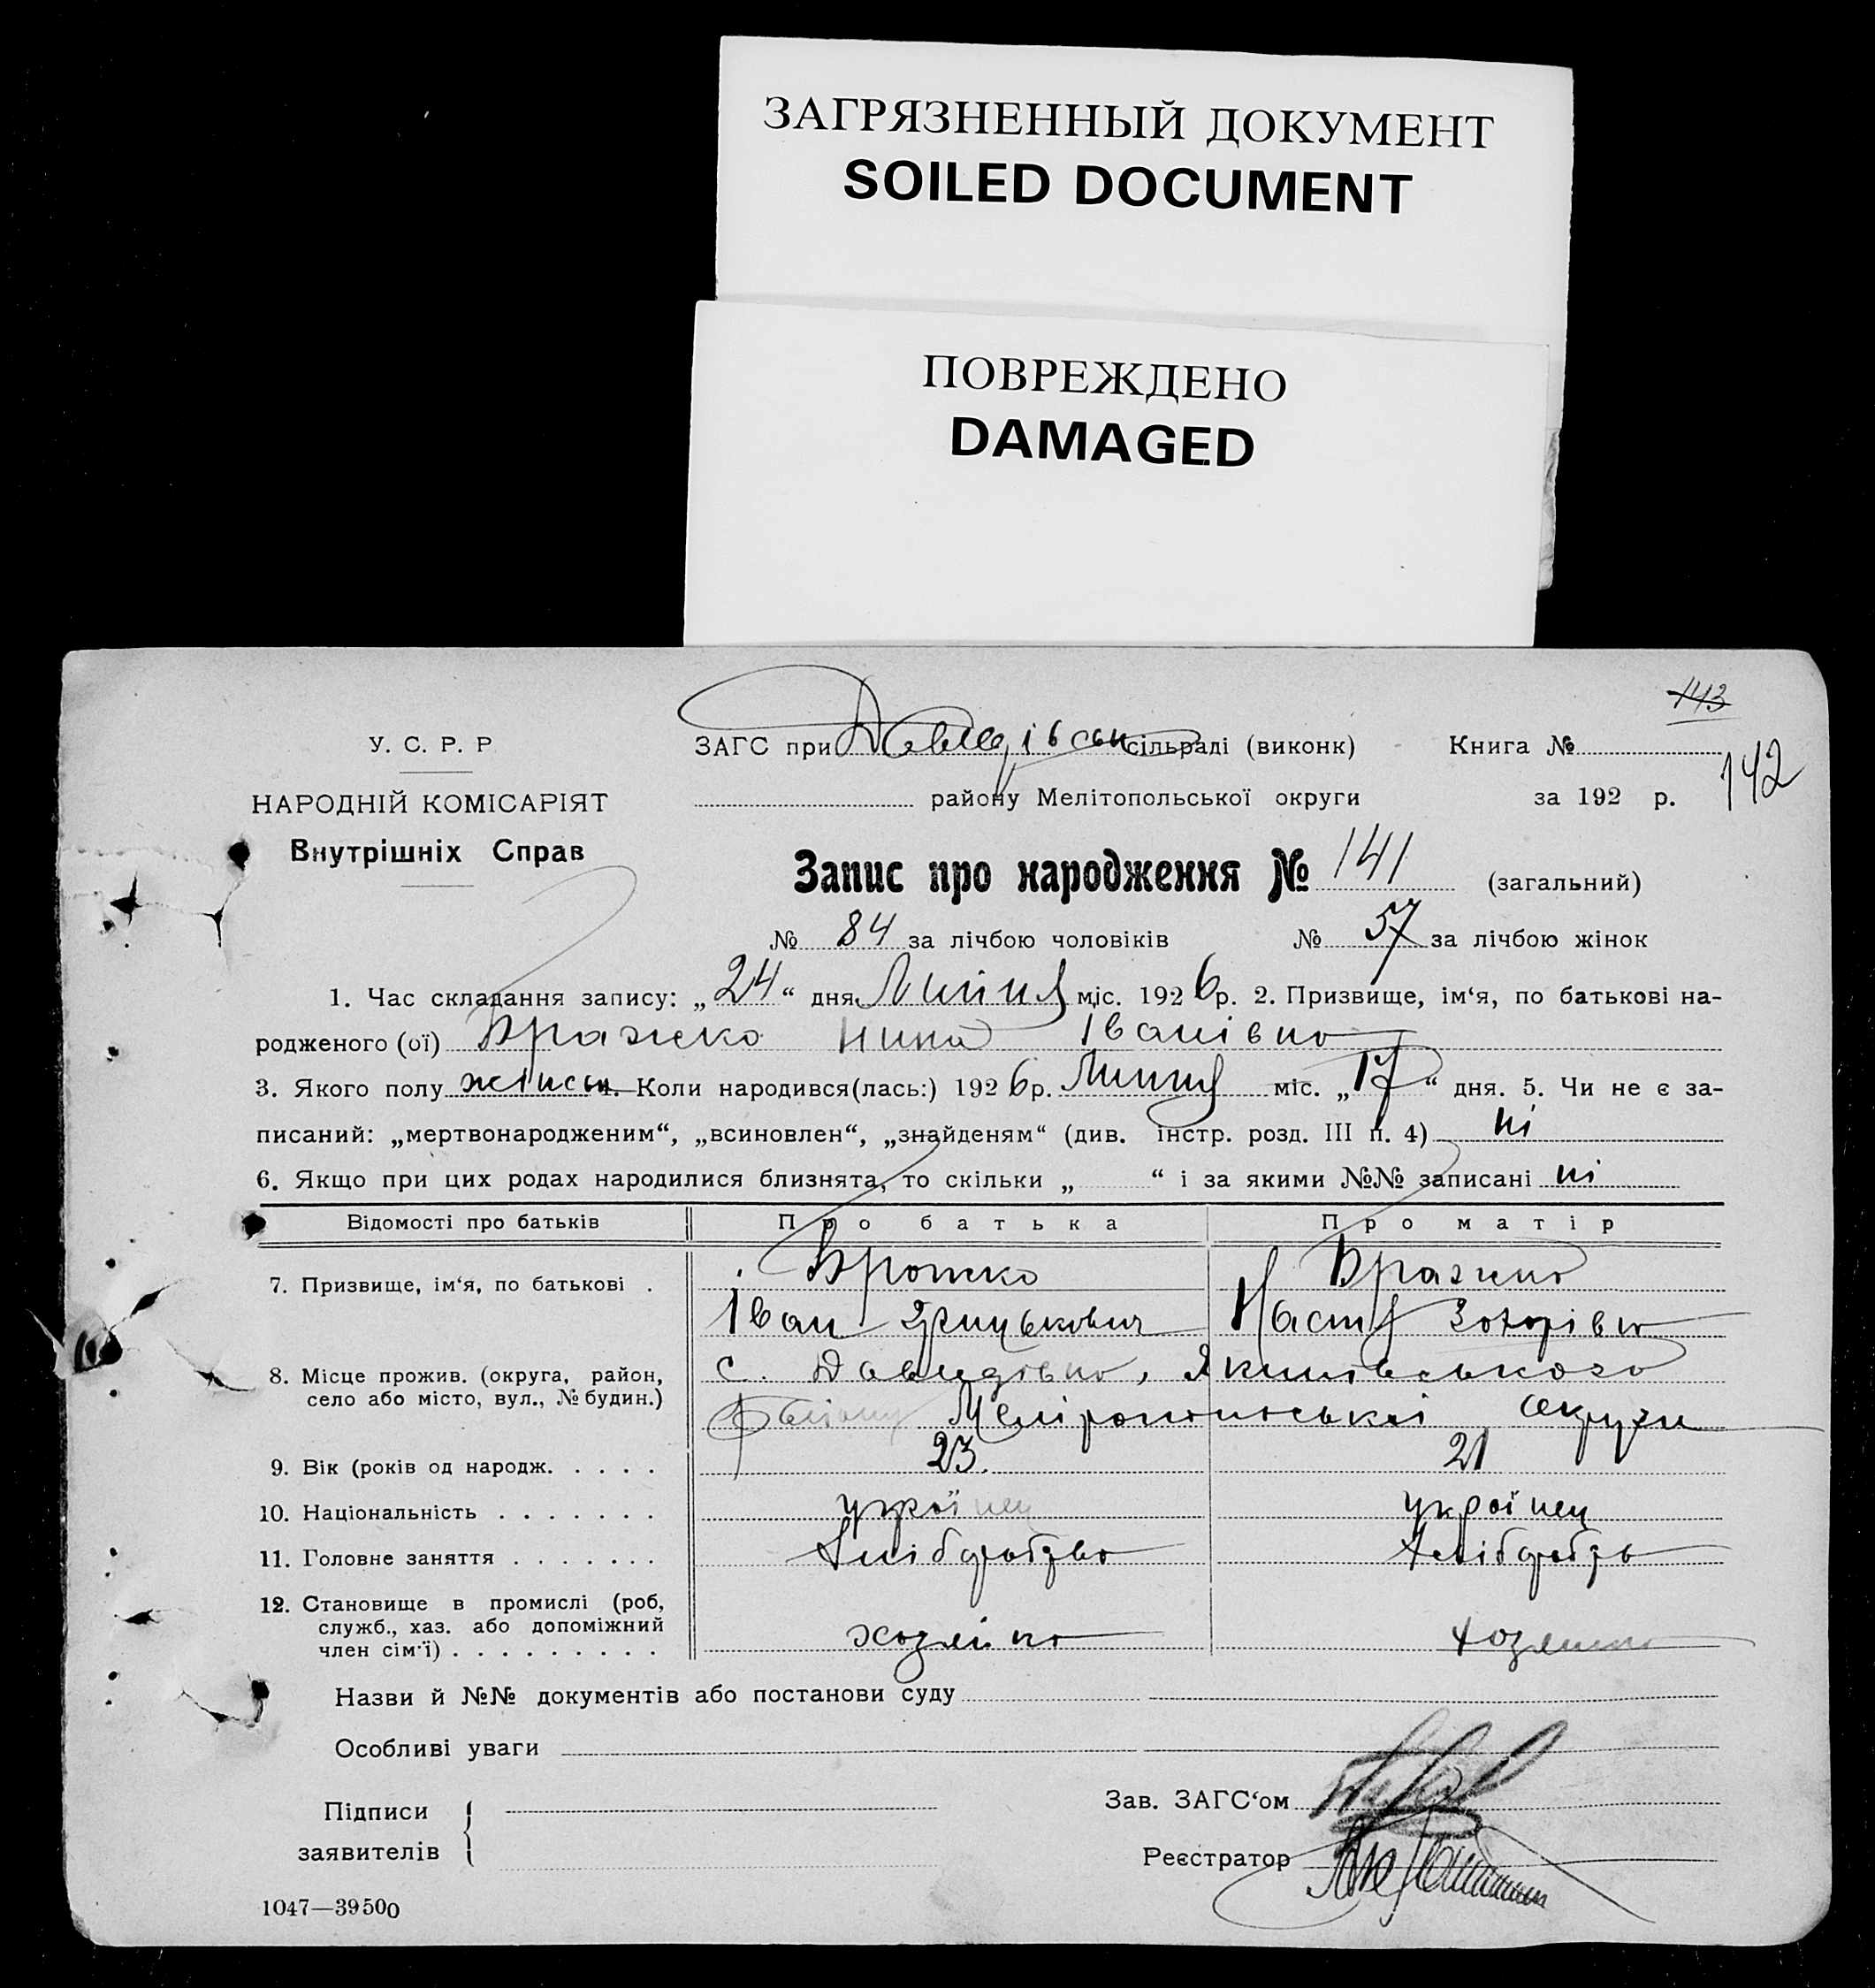 ЗАГРЯЗНЕННЫЙ ДОКУМЕНТ
SOILED DOCUMENT
ПОВРЕЖДЕНО
DAMAGED
143
У. С. Р. Р
ЗАГС при Давидівськ сільраді (виконк) Книга №
142
НАРОДНІЙ КОМІСАРІЯТ
району Мелітопольської округи за 192 р.
Внутрішніх Справ
Запис про народження № 141 (загальний)
№ 84 за лічбою чоловіків № 57 за лічбою жінок
1. Час складання запису: „24“ дня Липня міс. 1926 р. 2. Призвище, ім‘я, по батькові на-
родженого (ої) Бражко Нина Іванівно
3. Якого полу жіноч 4. Коли народився(лась:) 1926 р. Липня міс. „17“ дня. 5. Чи не є за-
писаний: „мертвонародженим“, „всиновлен“, „знайденям“ (див. інстр. розд. III п. 4) ні
6. Якщо при цих родах народилися близнята, то скільки „ “ і за якими №№ записані ні
Відомості про батьків Про батька Про матір
7. Призвище, ім‘я, по батькові . Бражко Бражко
Іван Грицькович Настя Захарівно
8. Місце прожив. (округа, район, с. Давидівно, Якимівського
село або місто, вул., № будин.) району Меліропольської округи
9. Вік (років од народж. . . . . 23 21
10. Національність . . . . . . . українец українец
11. Головне заняття . . . . . . . Хліборобство Хлібороб
12. Становище в промислі (роб,
служб., хаз. або допоміжний
член сім‘ї) . . . . . . . . . хозяїно хозяино
Назви й №№ документів або постанови суду
Особливі уваги
Підписи
заявителів
Зав. ЗАГС‘ом
Реєстратор
1047—39500